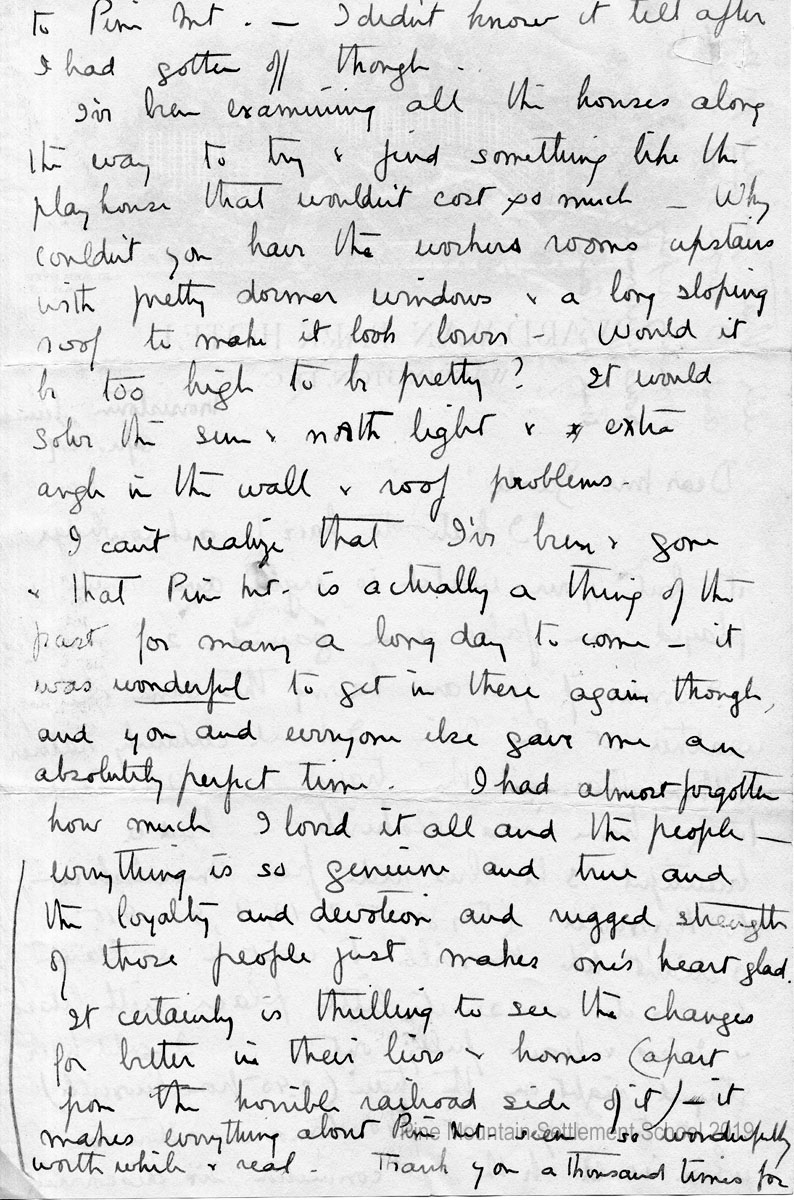 to Pine Mt. - I didn't know it till after
I had gotten off though -
I've been examining all the houses along
the way to try & find something like the
playhouse that wouldn't cost so much - Why
couldn't you have the workers rooms upstairs
with pretty dormer windows & a long sloping
roof to make it look lower - Would it
be too high to be pretty? It would
solve the sun & north light & extra
angle in the wall & roof problems -
I can't realize that I've been & gone
& that Pine Mt. is actually a thing of the
past for many a long day to come - it
was wonderful to get in there again though,
and you and everyone else gave me an
absolutely perfect time. I had almost forgotten
how much I loved it all and the people -
everything is so genuine and true and
the loyalty and devotion and rugged strength
of those people just makes one's heart glad.
It certainly is thrilling to see the changes
for better in their lives & homes (apart
from the horrible railroad side of it) - it
makes everything about Pine Mt seem so wonderfully
Pine Mountain Settlement School 2019
worth while & real - Thank you a thousand times for